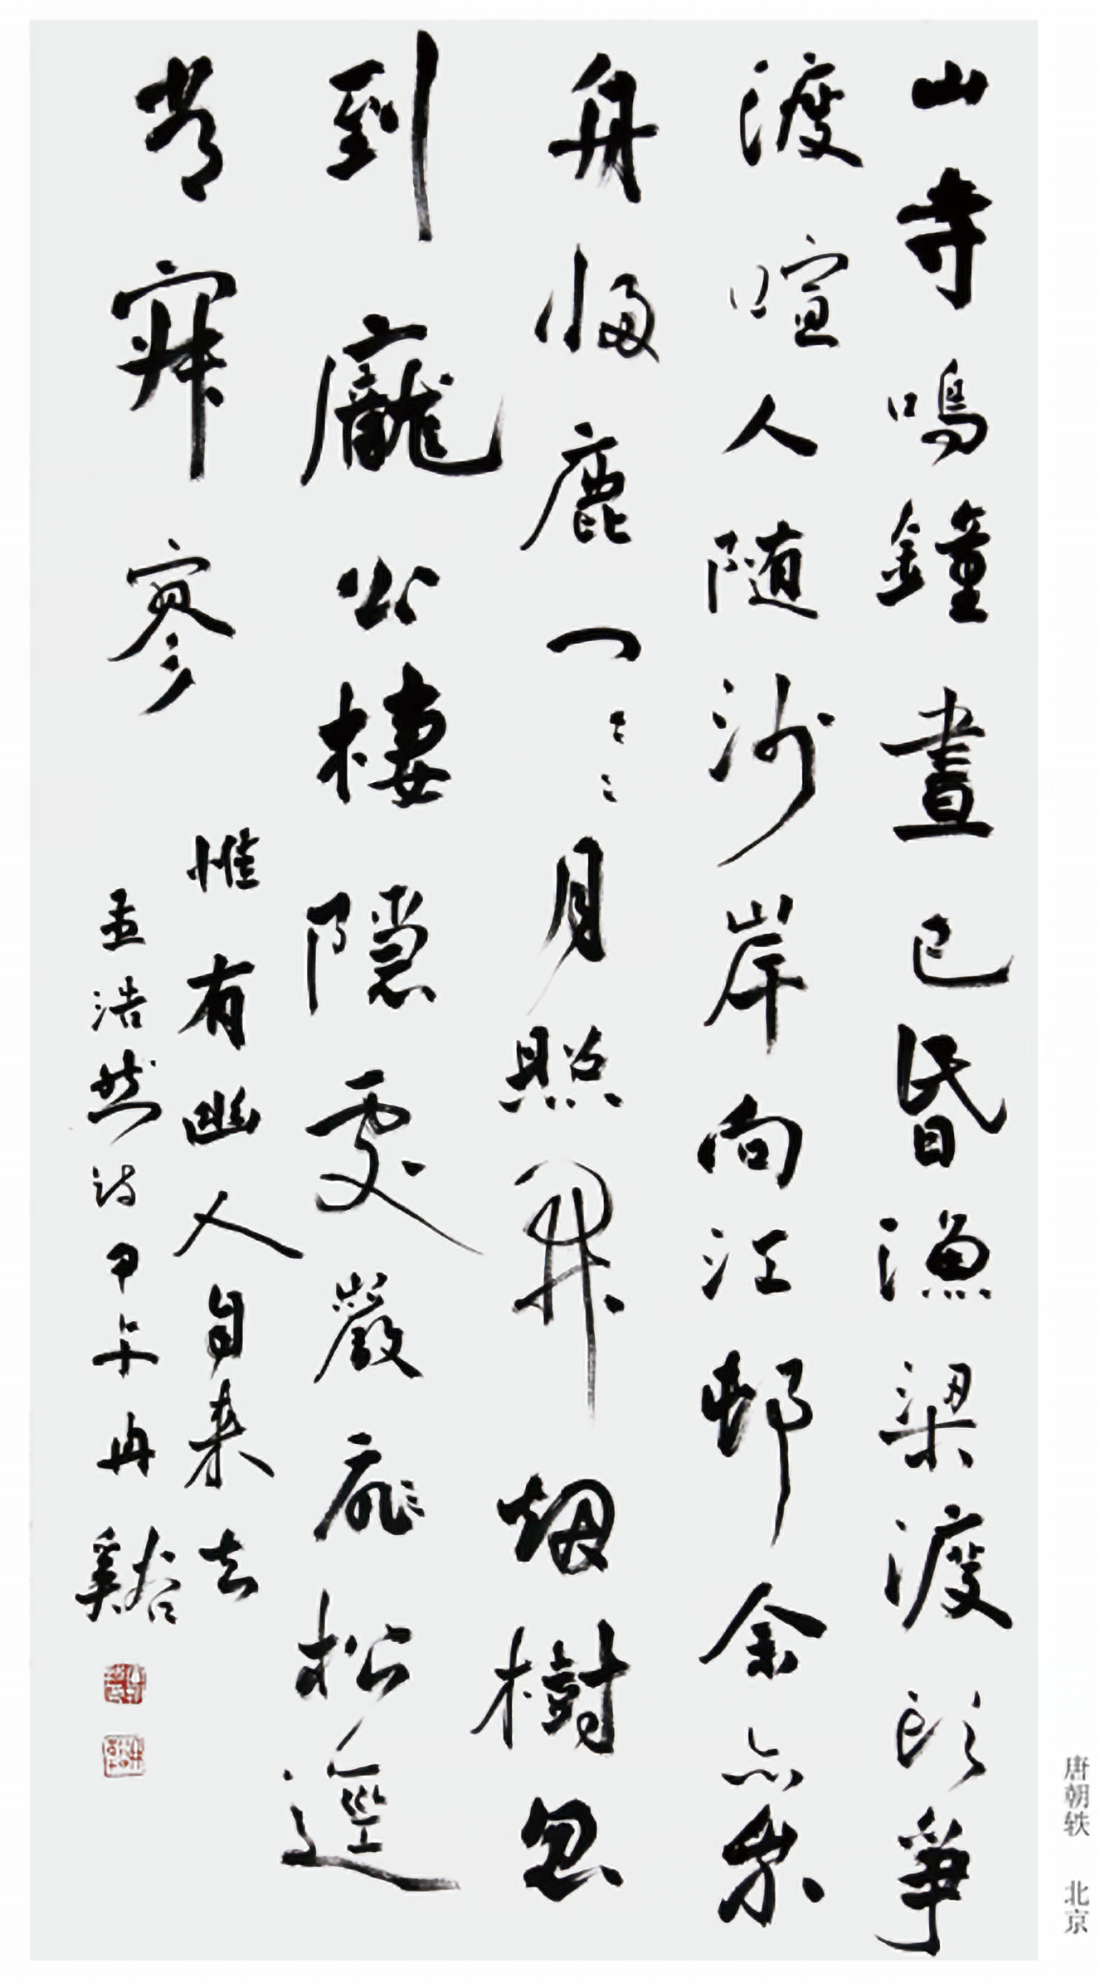 山寺鳴鐘晝已昏漁梁渡頭爭
渡喧人随沙岸向江邨余亦乘
舟归鹿门〻〻月照開烟樹忽
到龐公棲隱處巖扉松逕
长寂寥
惟有幽人自来去
孟浩然诗甲午冉谿
唐朝轶 北京